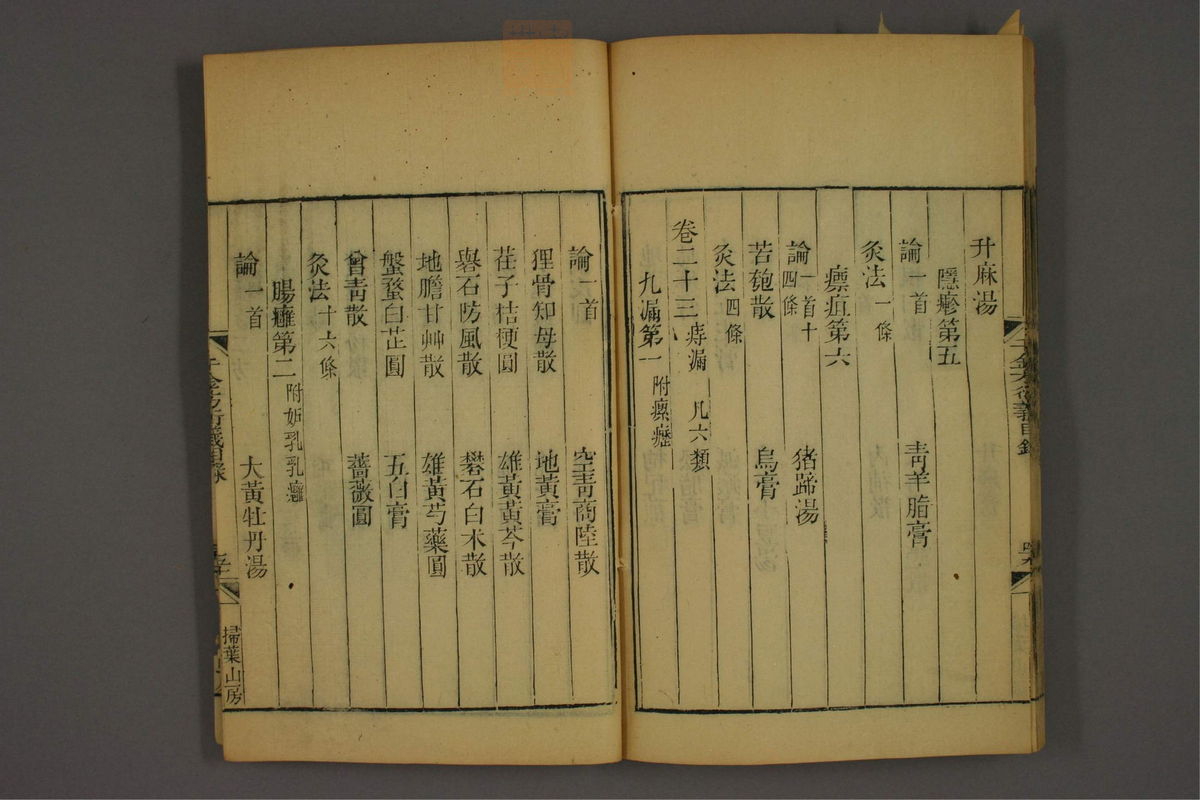 升麻湯
隱疹第五
論一首 青羊脂膏
灸法一條
瘭疽第六
論一首十四條 猪蹄湯
苦瓠散 烏膏
灸法四條
卷二十三 痔漏 凡六類
九漏第一 附瘰癧
論一首 空青商陸散
狸骨知母散 地黃膏
荏子桔梗圓 雄黃黃芩散
礜石防風散 礬石白朮散
地膽甘艸散 雄黃芍藥圓
盤蝥白芷圓 五白膏
曾青散 薔薇圓
灸法十六條
腸癰第二 附妬乳乳癰
論一首 大黃牡丹湯
千金方衍義目錄
掃葉山房